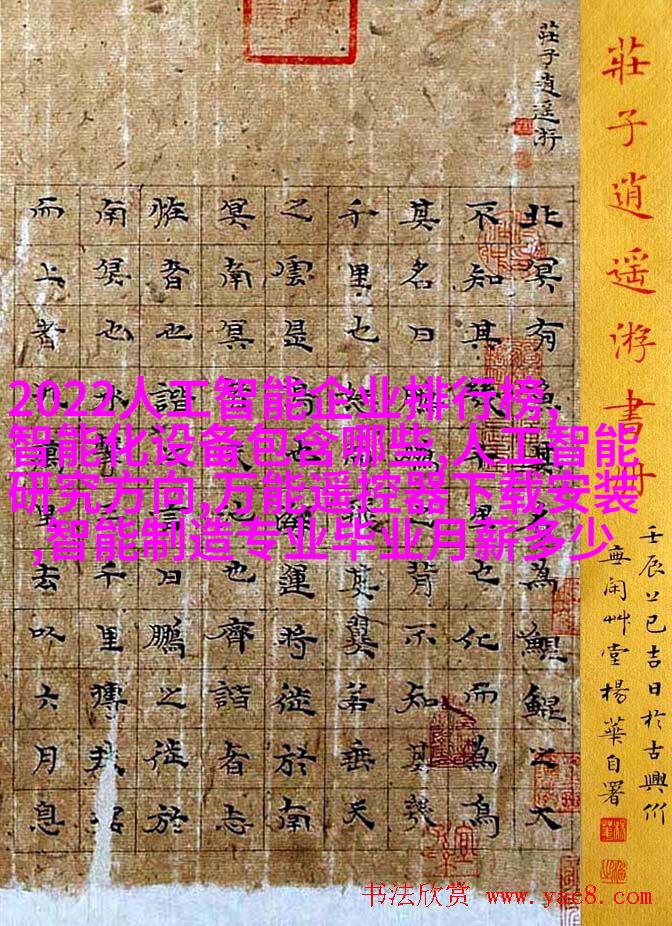 莊子逍遥游
北冥有魚其名為鯤鯤之大
不知其幾千里也化而為鳥
其名曰鵬鵬之背不知其幾
千里也怒而飛其翼若垂天
之雲是鳥也海運將徙於南
冥南冥者天池也齊諧者志
恠者也諧之言曰鵬之徙於
南冥也水擊三千里摶扶搖
而上者九萬里去以六月息
莊子逍遥游書冊
壬辰上巳吉日於古興州
無闲艸堂楊華自署
2022人工智能企业排行榜,
智能化设备包含哪些,人工智能
研究方向,万能遥控器下载安装
,智能制造专业毕业月薪多少
书法欣赏 www.yac8.com